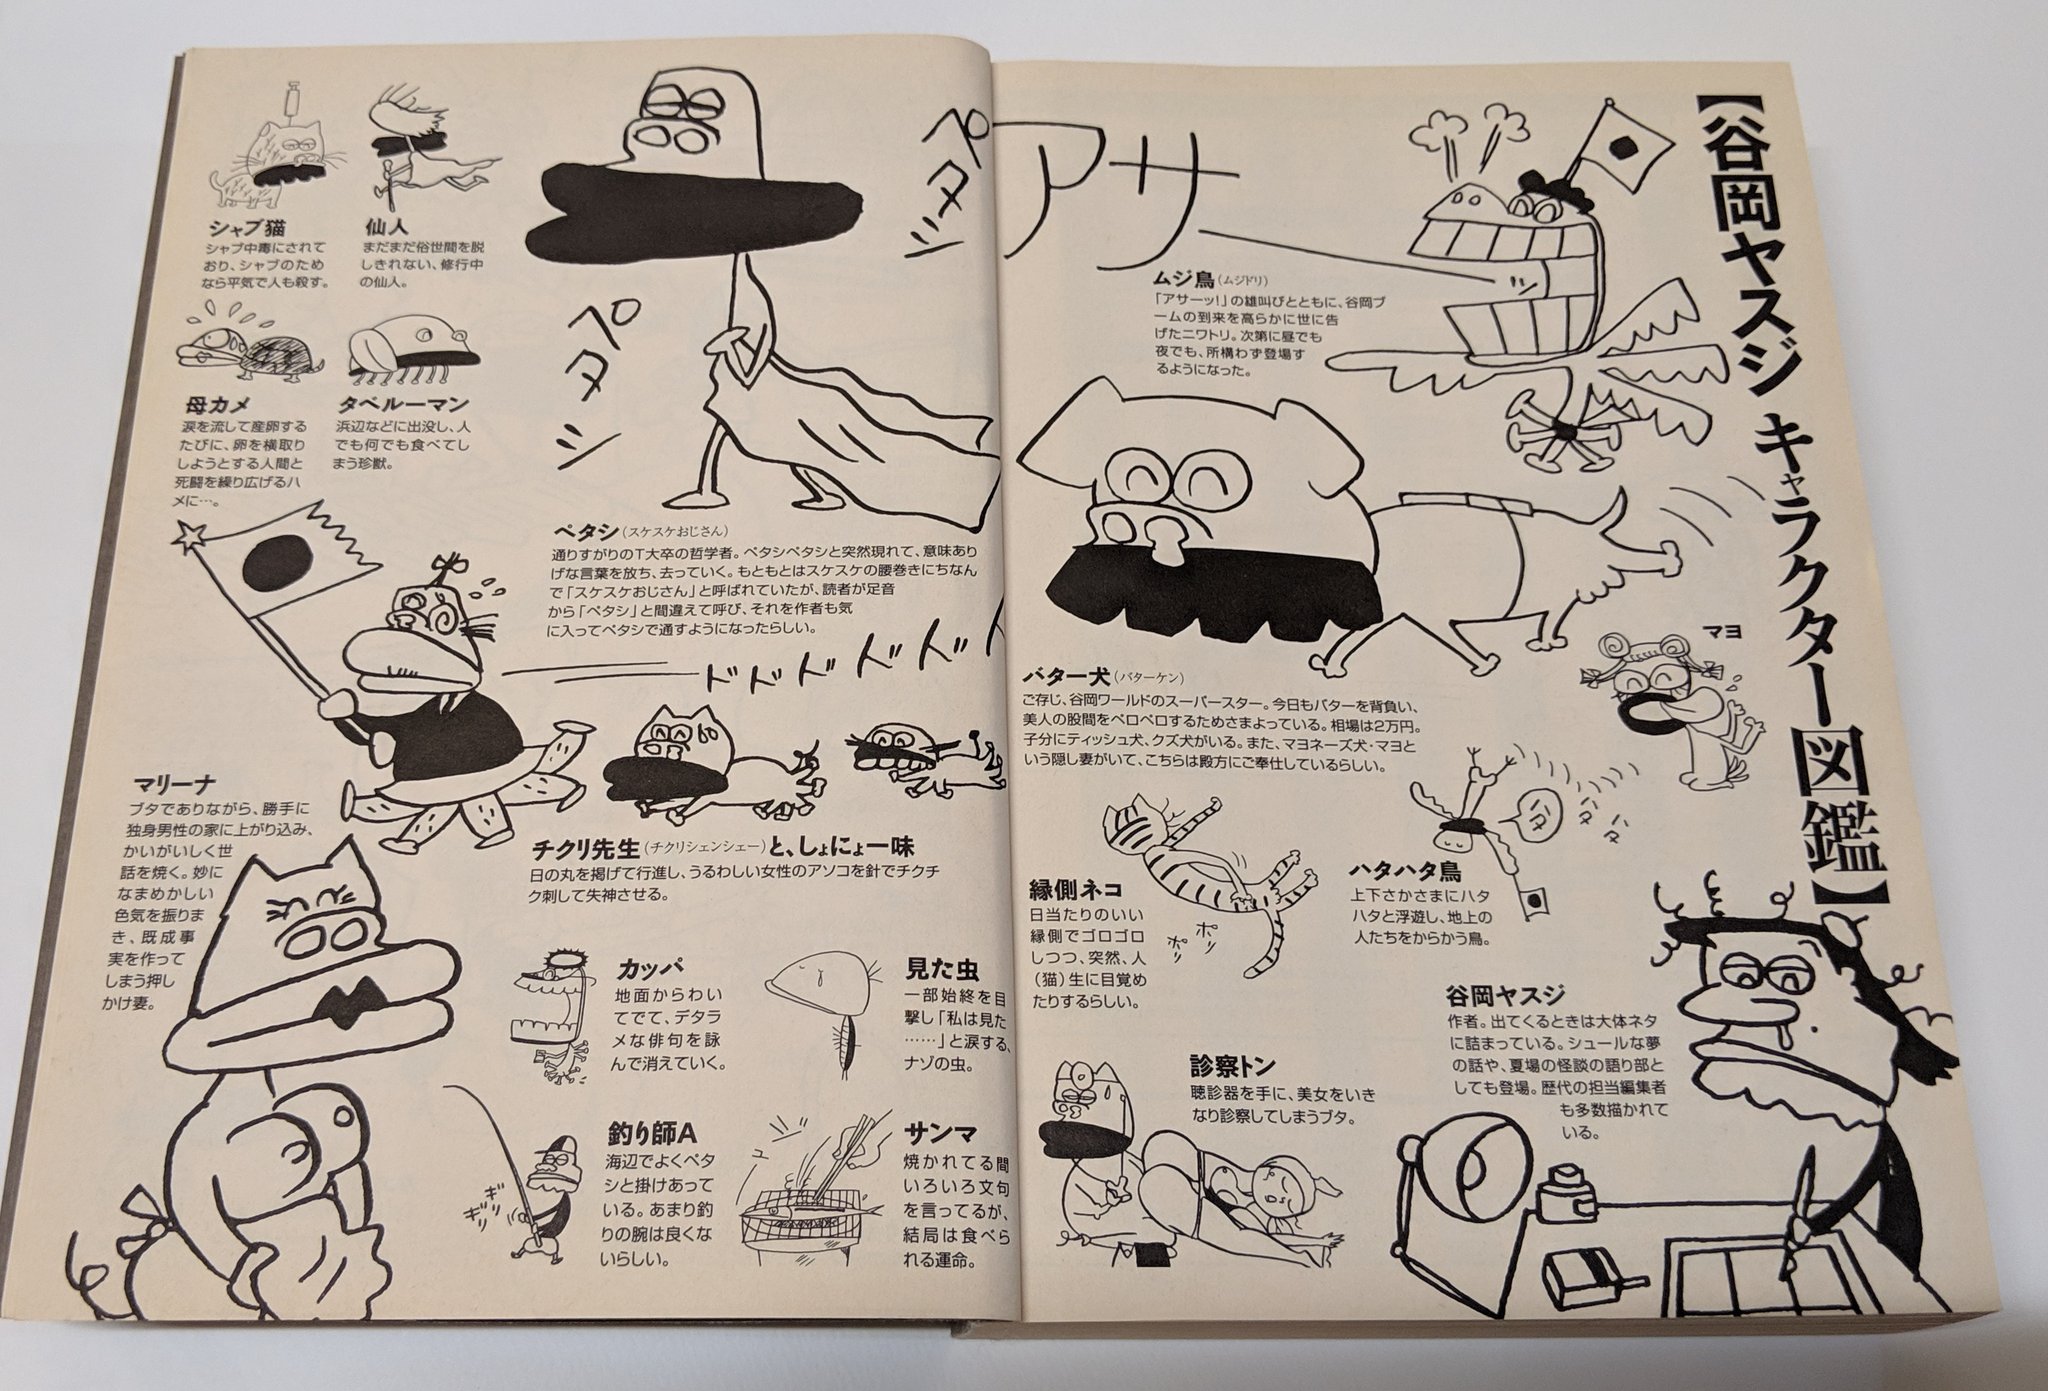 【谷岡ヤスジ キャラクター図鑑】
アサー
ッ
ムジ鳥(ムジドリ)
「アサーッ!」の雄叫びとともに、谷岡ブ
ームの到来を高らかに世に告
げたニワトリ。次第に昼でも
夜でも、所構わず登場す
るようになった。
バター犬(バターケン)
ご存じ、谷岡ワールドのスーパースター。今日もバターを背負い、
美人の股間をペロペロするためさまよっている。相場は2万円。
子分にティッシュ犬、クズ犬がいる。また、マヨネーズ犬・マヨと
いう隠し妻がいて、こちらは殿方にご奉仕しているらしい。
マヨ
ハタハタ鳥
上下さかさまにハタ
ハタと浮遊し、地上の
人たちをからかう鳥。
ハタ
ハタ
ハタ
縁側ネコ
日当たりのいい
縁側でゴロゴロ
しつつ、突然、人
(猫)生に目覚め
たりするらしい。
ポリ
ポリ
谷岡ヤスジ
作者。出てくるときは大体ネタ
に詰まっている。シュールな夢
の話や、夏場の怪談の語り部と
しても登場。歴代の担当編集者
も多数描かれて
いる。
診察トン
聴診器を手に、美女をいき
なり診察してしまうブタ。
ペタシ
ペタシ
ペタシ(スケスケおじさん)
通りすがりのT大卒の哲学者。ペタシペタシと突然現れて、意味あり
げな言葉を放ち、去っていく。もともとはスケスケの腰巻きにちなん
で「スケスケおじさん」と呼ばれていたが、読者が足音
から「ペタシ」と間違えて呼び、それを作者も気
に入ってペタシで通すようになったらしい。
仙人
まだまだ俗世間を脱
しきれない、修行中
の仙人。
シャブ猫
シャブ中毒にされて
おり、シャブのため
なら平気で人も殺す。
タベルーマン
浜辺などに出没し、人
でも何でも食べてし
まう珍獣。
母カメ
涙を流して産卵する
たびに、卵を横取り
しようとする人間と
死闘を繰り広げるハ
メに…。
ドドドドドド
チクリ先生(チクリシェンシェー)と、しょにょ一味
日の丸を掲げて行進し、うるわしい女性のアソコを針でチクチ
ク刺して失神させる。
マリーナ
ブタでありながら、勝手に
独身男性の家に上がり込み、
かいがいしく世
話を焼く。妙に
なまめかしい
色気を振りま
き、既成事
実を作って
しまう押し
かけ妻。
見た虫
一部始終を目
撃し「私は見た
……」と涙する、
ナゾの虫。
カッパ
地面からわい
てでて、デタラ
メな俳句を詠
んで消えていく。
サンマ
焼かれてる間
いろいろ文句
を言ってるが、
結局は食べら
れる運命。
釣り師A
海辺でよくペタ
シと掛けあって
いる。あまり釣
りの腕は良くな
いらしい。
ギリ
ギリ